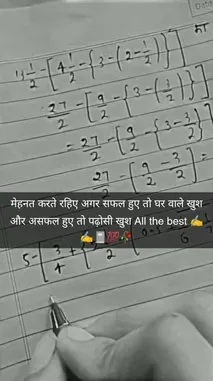 13 1/2 - [4 1/2 - {3 - (2 - 1/2)}]
27/2 - [9/2 - {3 - (3/2)}]
= 27/2 - [9/2 - {3 - 3/2}]
27/2 - (9/2 - 3/2) =
मेहनत करते रहिए अगर सफल हुए तो घर वाले खुश
और असफल हुए तो पढ़ोसी खुश All the best ✍️
✍️📓💯🥀
5 - [3/4 +